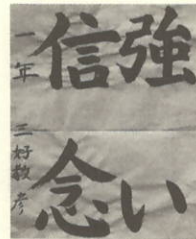 強い
信念
一年 三好敬彦